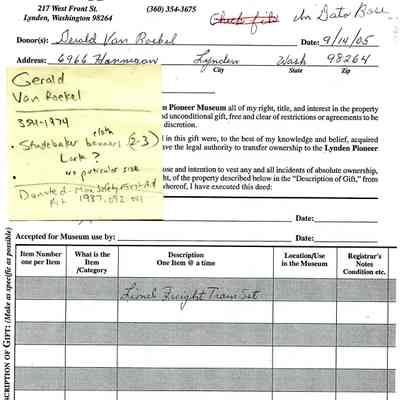 217 West Front St. (360) 354-3675
Lynden, Washington 98264
In Data Base
Donor(s): Gerald Van Roekel Date: 9/14/05
Address: 6966 Hannegan Lynden Wash 98264
City State Zip
Gerald
Van Roekel
354-1874
cloth
• Studebaker banners (2-3)
Look?
no particular size
Donated - Safety First Aid
Kit 1987.092.001
Pioneer Museum all of my right, title, and interest in the property
and unconditional gift, free and clear of restrictions or agreements to be
discretion.
in this gift were, to the best of my knowledge and belief, acquired
ve the legal authority to transfer ownership to the Lynden Pioneer
and intention to vest any and all incidents of absolute ownership,
ht, of the property described below in the "Description of Gift," from
hereof, I have executed this deed:
Date:
Accepted for Museum use by: Date:
Item Number one per Item
What is the Item /Category
Description One Item @ a time
Location/Use in the Museum
Registrar's Notes Condition etc.
Lionel Freight Train Set
SCRIPTION OF GIFT: (Make as specific as possible)